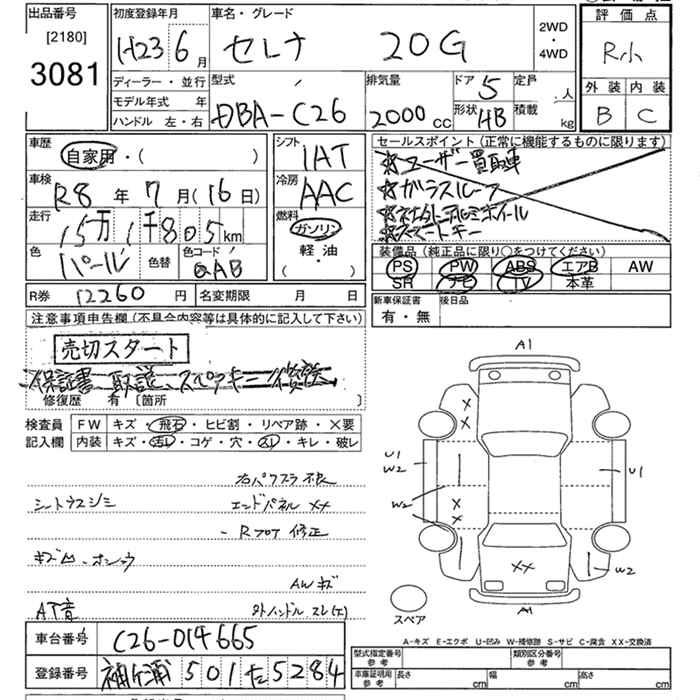 出品番号 [2180] 3081
初度登録年月 H23 6 月
車名・グレード セレナ 20G
2WD・4WD
評価点 R小
外装 内装
B C
ディーラー・並行
モデル年式 年
ハンドル 左・右
型式 DBA-C26
排気量 2000 cc
ドア 5
定員 人
形状 HB
積載 kg
車歴 自家用・( )
車検 R8 年 7 月 (16 日)
走行 15万1千805 km
色 パール
色替
色コード QAB
シフト IAT
冷房 AAC
燃料 ガソリン 軽油
セールスポイント (正常に機能するものに限ります)
☆ユーザー買取車
☆ガラスルーフ
☆スマートキー
装備品 (純正品に限り○をつけてください)
PS PW ABS エアB AW
SR ナビ TV 本革
R券 12260 円
名変期限 月 日
新車保証書 有・無
後日品
注意事項申告欄 (不具合内容等は具体的に記入して下さい)
売切スタート
保証書 取説
修復歴 有 [箇所 ]
検査員記入欄
FW キズ・飛石・ヒビ割・リペア跡・×要
内装 キズ・汚レ・コゲ・穴・スレ・キレ・破レ
右バクフラ不良
シートウスジミ
エンドパネル XX
-Rフロア 修正
AWキズ
AT音
外ハンドルスレ
車台番号 C26-014665
登録番号 袖ヶ浦 501 た 5284
A1
U1
W2
W2
U1
W2
XX
A1
スペア
A-キズ E-エクボ U-凹み W-補修跡 S-サビ C-腐食 XX-交換済
型式指定番号 参考
類別区分番号 参考
車庫証明用 参考 長さ cm 幅 cm 高さ cm